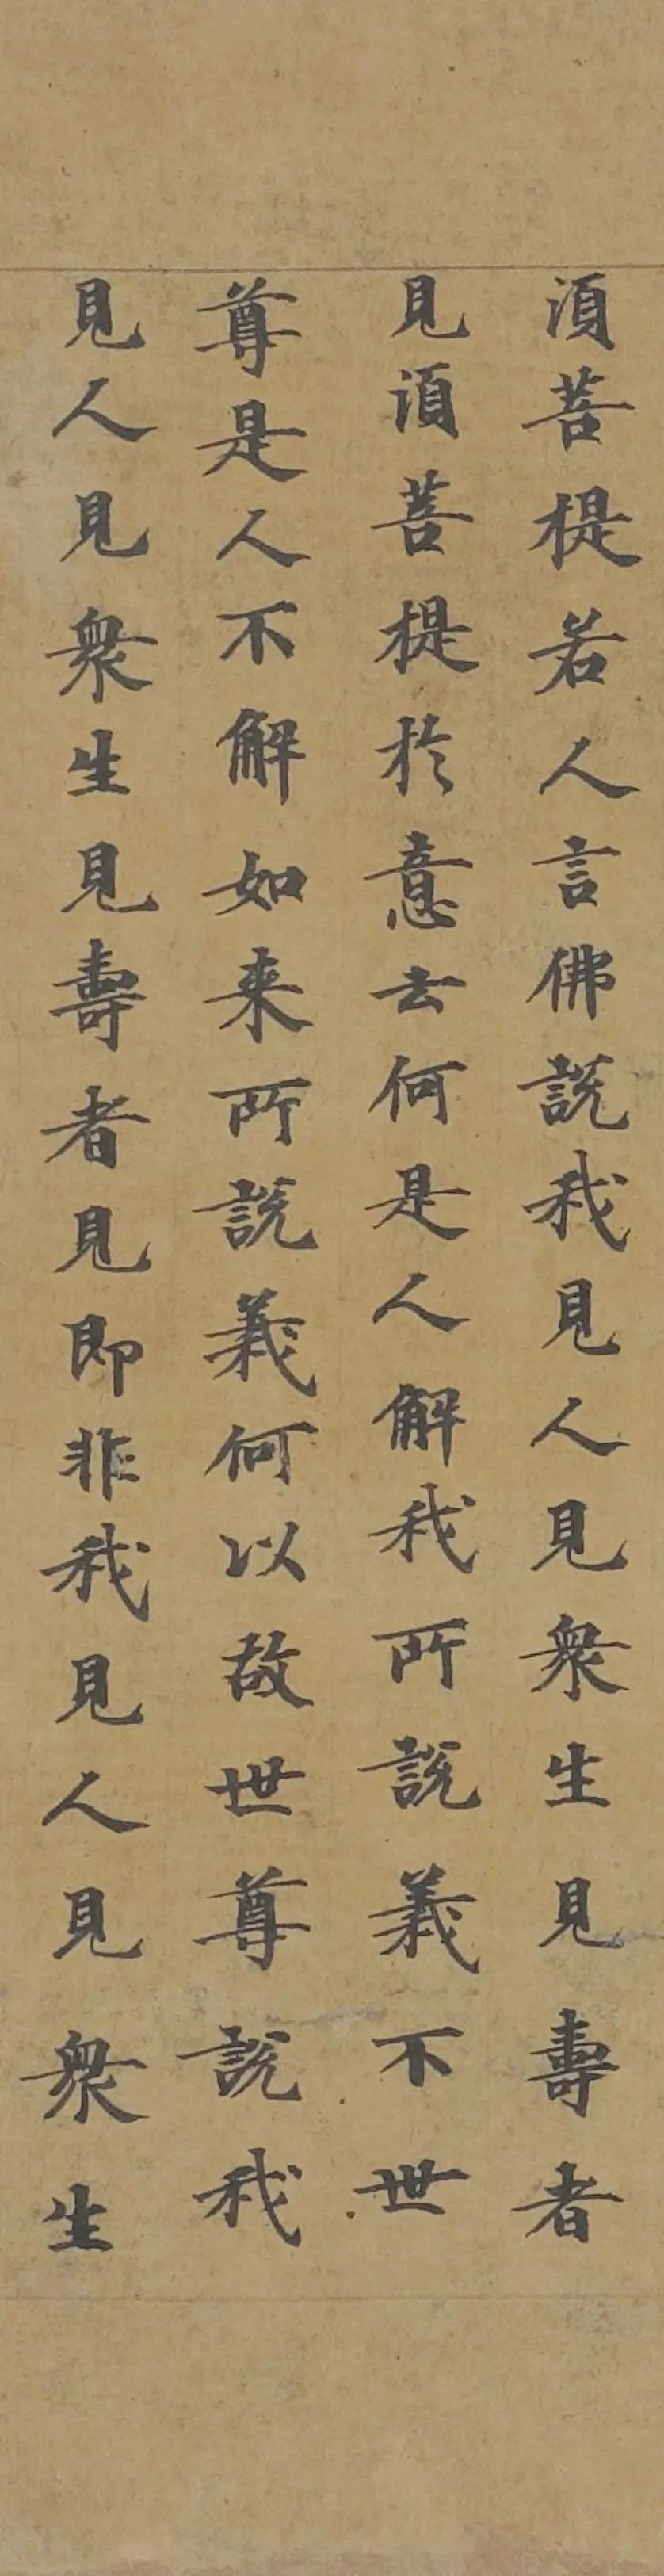 須菩提若人言佛說我見人見衆生見壽者
見須菩提於意云何是人解我所說義不世
尊是人不解如来所說義何以故世尊說我
見人見衆生見壽者見即非我見人見衆生